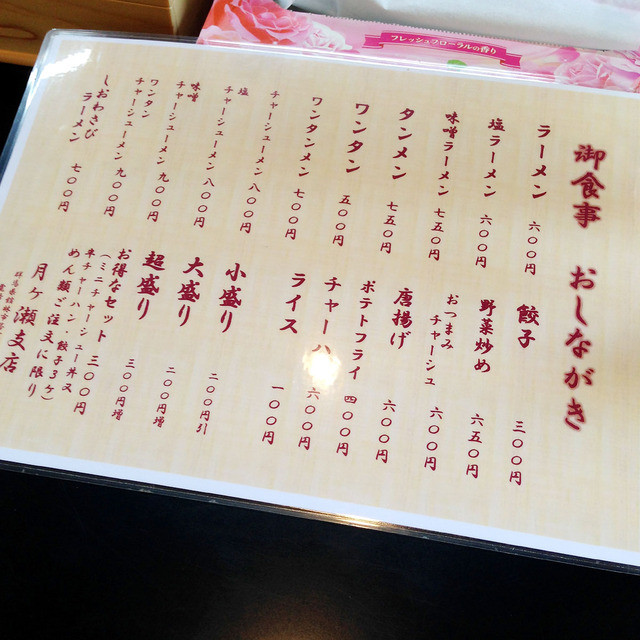 フレッシュフローラルの香り
御食事 おしながき
ラーメン 六〇〇円
塩ラーメン 六〇〇円
味噌ラーメン 七五〇円
タンメン 七五〇円
ワンタン 五〇〇円
ワンタンメン 七〇〇円
チャーシューメン 八〇〇円
塩
チャーシューメン 八〇〇円
味噌
チャーシューメン 九〇〇円
ワンタン
チャーシューメン 九〇〇円
しおわさび
ラーメン 七〇〇円
餃子 三〇〇円
野菜炒め 六五〇円
おつまみ
チャーシュー 六〇〇円
唐揚げ 六〇〇円
ポテトフライ 四〇〇円
チャーハン 六〇〇円
ライス 一〇〇円
小盛り 二〇〇円引
大盛り 二〇〇円増
超盛り 三〇〇円増
お得なセット 三〇〇円
(ミニチャーシュー丼又
半チャーハン・餃子3ケ)
めん類ご注文に限り
月ヶ瀬支店
群馬県館林市